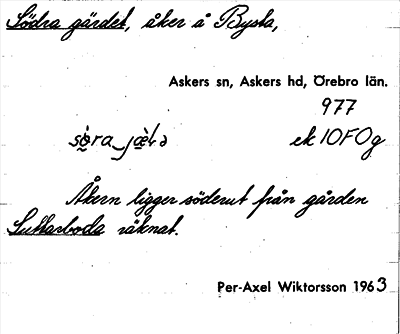 Södra gärdet, åker å Bysta,
Askers sn, Askers hd, Örebro län.
977
ek 10F0g
Åkern ligger söderut från gården
räknat.
Per-Axel Wiktorsson 1963